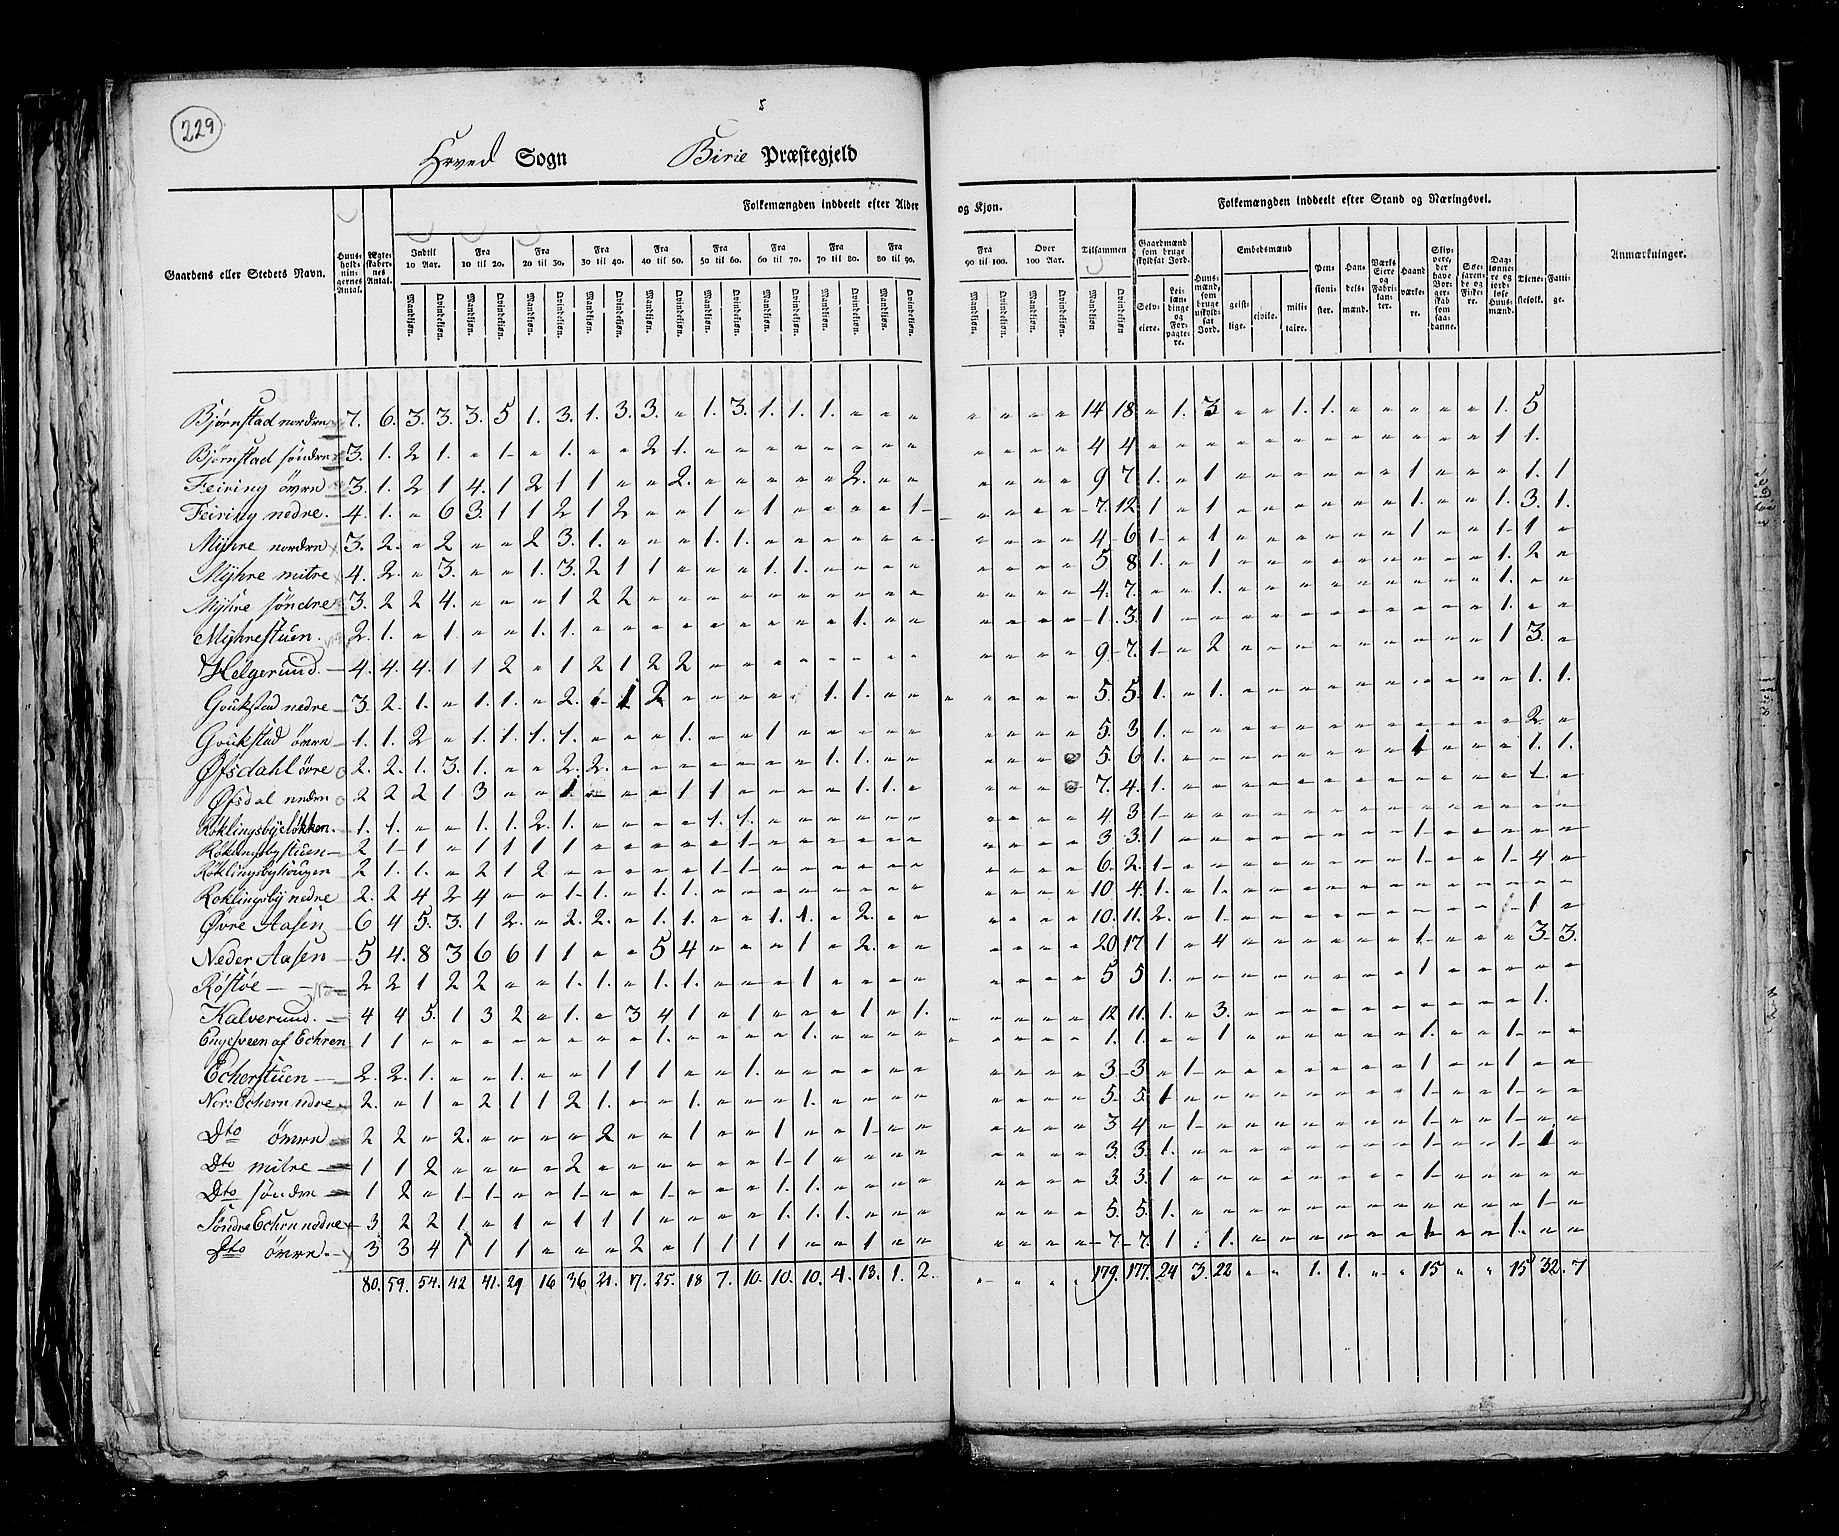 229
5
Hrved Sogn Birie Præstegjeld
Folkemængden inddeelt efter Alder og Kjøn.
Folkemængden inddeelt efter Stand og Næringsvei.
Gaardens eller Stedets Navn.
Huusholdningernes Antal.
Ægteskabernes Antal.
Indtil 10 Aar.
Fra 10 til 20.
Fra 20 til 30.
Fra 30 til 40.
Fra 40 til 50.
Fra 50 til 60.
Fra 60 til 70.
Fra 70 til 80.
Fra 80 til 90.
Fra 90 til 100.
Over 100 Aar.
Tilsammen
Mandkjøn. Qvindekjøn.
Gaardmænd som bruge skyldsat Jord.
Selveiere.
Leilændinge og Forpagtere.
Huusmænd, som bruge uskyldsat Jord.
Embedsmænd
geistlige.
civile.
militaire.
Pensionister.
Handelsmænd.
Værks Eiere og Fabrikanter.
Haandværkere.
Skippere, der have Borgerskab som saadanne.
Søefarende og Fiskere.
Daglønnere og jordløse Huusmænd.
Tjenestefolk.
Fattige.
Anmærkninger.
Bjørnstad nordre 7. 6. 3. 3. 3. 5 1. 3. 1. 3 3. „ 1. 3. 1. 1. 1. „ „ „ „ „ „ „ 14 18 „ 1. 3 „ „ 1. 1. „ „ „ „ „ 1. 5
Bjørnstad søndre 3. 1. 2 1. „ 1 „ 1. „ „ 2 1. 4 4 1 1.
Feiring øvre 3. 1. 2 1 4. 1 2 1 1 „ „ 2. „ „ „ „ „ 2. „ „ 9 7 1. „ 1 1 1. 1
Feiring nedre. 4. 1. „ 6 3. 1 1 2 1 2 „ „ 1 „ 1 „ „ „ „ 1 7. 12. 1 „ 1 1. 1. 3. 1.
Mÿhre nordre 3. 2. „ 2 „ „ 2 3. 1. „ „ „ 1. 1. 4 6 1 „ 1 1 1 1 „
Mÿhre mitre 4. 2. „ 3. „ „ 1. 3. 2 1 1 „ „ „ 1. 1. 5 8 1. „ 1 1. 2 „
Mÿhre søndre 3. 2 2 4. „ „ „ 1 2 2 4. 7. „ „ 1. 1. „ „
Mÿhrestuen. 2. 1. „ 1. „ „ 1. 1. 1. 1. 3. 1 1.
Helgerud. 4. 4. 4. 1 1 2 „ 1 2 1 2 2 9 7. 1 „ 2 1 3. „
Goukstad nedre 3. 2. 1. „ 1. 1. „ 2. 1 1 2 1. 1. „ „ 5. 5. 1. „ 1. 1. 1.
Goukstad øvre 1. 1. 2 „ 1. 1. 1. 1. „ „ „ 1. „ „ 1 5. 3 1. 2. „
Øfsdahl øvre 2. 2. 1. 3. 1. „ „ 2. 2. 1. 1. „ „ 5. 6 1. 1 1. 1.
Øfsdal nedre 2 2 2 1 3 „ „ 1 „ „ „ 1 1 „ „ „ 1. 1. „ 7. 4. 1. 1. „
Røklingsbÿeløkken. 1. 1. „ „ 1. 1. 2. 1. „ „ „ „ 1. 1. 4 3 1
Røklingsbystuen 2 1 1 „ 1 1 1 1 3 3. 1 1
Røklingsbystougen 2 1. 1. „ 2 1 2 „ „ „ „ „ 1 1 6. 2. 1 1 1 4 „
Roklingsbÿ nedre 2. 2 4 2 4 „ „ 1. 1. „ 1. 1. 10 4 1. „ 1.
Øvre Aasen 6 4 5. 3. 1 2. „ 2. 2. „ 1. 1. „ „ 1. 1. „ 2. „ „ 10. 11. 2. „ 1. 1 „
Neder Aasen 5 4. 8 3 6 6 1 1 „ „ 5 4 „ „ „ 1 „ 2. „ „ 20 17 1 „ 4 1 3. 3.
Røstøe 2 2 1 2 2 „ „ 1. 1. „ 1. 1. „ „ „ 1 5 5 1. 1
Kalverud. 4 4 5. 1 3 2 „ 1. „ 3 4 1 „ 1 „ „ „ 1 „ 1. 12 11. 1. „ 3. 1.
Engesveen af Echren 1 1 1. 1. 1. 1. „ „ 1 1. 1
Echerstuen 2. 2. 1. „ „ 1. „ „ 1 1 1 „ „ 1. 3 3 „ 1 1 1
Nor: Echern ndre. 2. „ 1 „ 2 1 1 2 1. „ „ 1. „ „ „ 1. 5. 5. 1 1 1
Dto øvre 2 2 „ 2. „ „ „ „ 2 „ „ 1 „ „ 1 „ „ 1 3 4 „ 1 1 1
Dto mitre 1 1 2 „ „ „ „ 2 1 1 3. 3. 1. 1 1 1 „
Dto søndre 1 2 „ 1 1 „ „ 1 „ „ 1 „ „ „ 1. 1. 3. 3. 1 1
Søndre Echrn nedre 3 2 2 1 „ 1 „ 1 1 1 1. 1. 1. 5. 5. 1. 1 „
Dto øvre. 3 3 4 1 1 1 „ „ „ 2 „ 1 1 1 1 „ „ 1 „ „ 7 7. 1 „ 1. 1 1.
80. 59. 54. 42 41. 29 16 36 21. 17. 25. 18 7. 10. 10. 10. 4. 13. 1. 2. „ „ „ „ 179. 177. 24 3. 22 „ „ 1. 1. „ „ 15 „ „ 15 32. 7